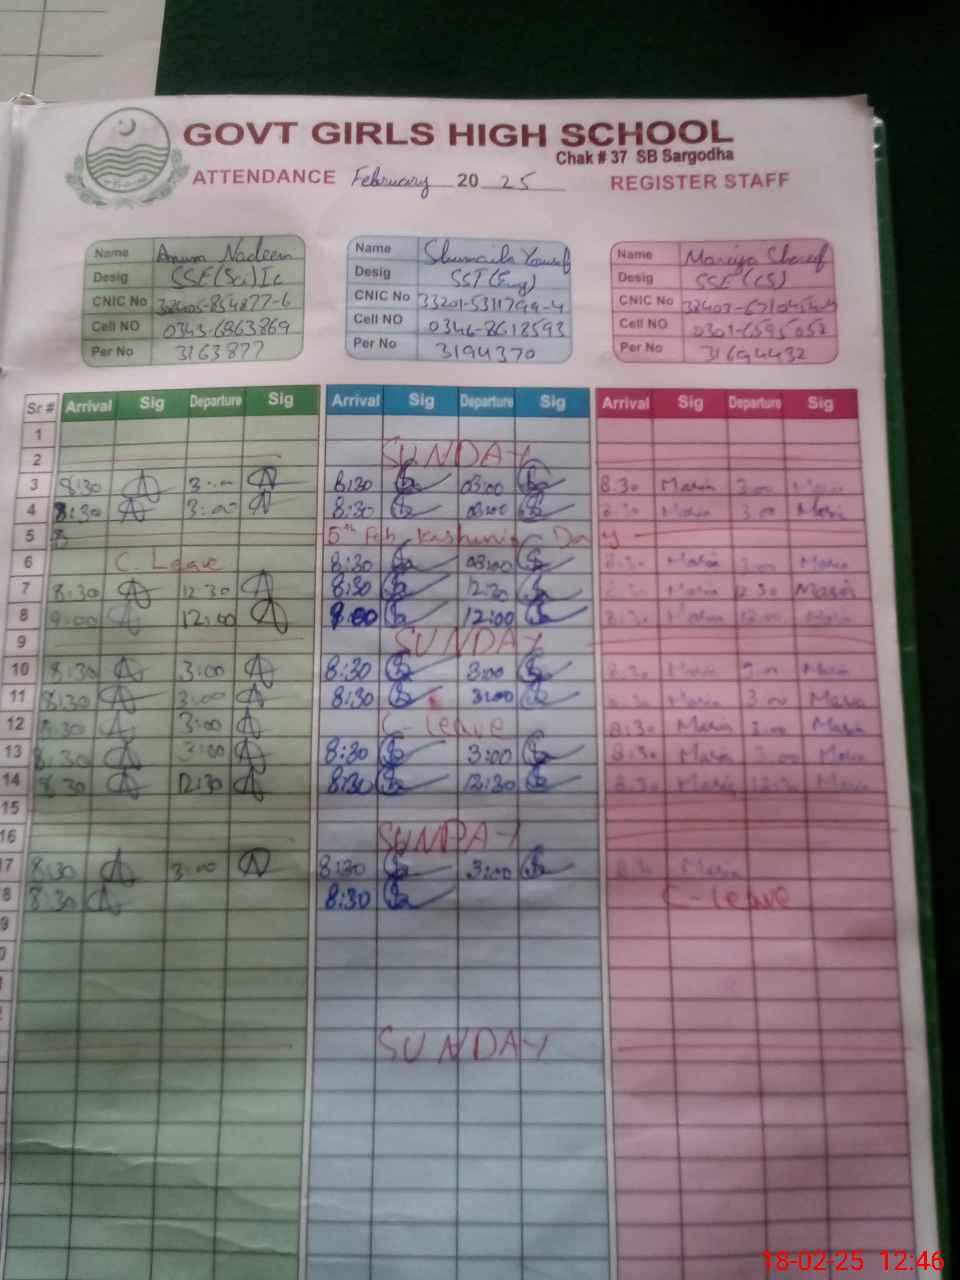 GOVT GIRLS HIGH SCHOOL
Chak # 37 SB Sargodha
ATTENDANCE February 20 25 REGISTER STAFF
Name Anum Nadeem Name Shumaila Yousaf Name Mariya Sharif
Desig SSE(Sci)Ic Desig SST(Eng) Desig SSE(CS)
CNIC No CNIC No 33201-5311799-4 CNIC No
Cell NO 0343-6863869 Cell NO 0346-8618593 Cell NO
Per No 3163877 Per No 3194370 Per No 31694432
Sr # Arrival Sig Departure Sig Arrival Sig Departure Sig Arrival Sig Departure Sig
1
2 SUNDAY
3 8:30 3:00 8:30 03:00 8:30 Maria 3:00 Maria
4 8:30 3:00 8:30 03:00 8:30 Maria 3:00 Maria
5 5th Feb Kashmir Day
6 C. Leave 8:30 03:00 8:30 Maria 3:00 Maria
7 8:30 12:30 8:30 12:30 8:30 Maria 12:30 Maria
8 9:00 12:00 12:00 8:30 Maria 12:00 Maria
9 SUNDAY
10 8:30 3:00 8:30 3:00 8:30 Maria 3:00 Maria
11 8:30 3:00 8:30 3:00 8:30 Maria 3:00 Maria
12 8:30 3:00 C-leave 8:30 Maria 3:00 Maria
13 8:30 3:00 8:30 3:00 8:30 Maria 3:00 Maria
14 8:30 12:30 8:30 12:30 8:30 Maria 12:30 Maria
15
16 SUNDAY
17 8:30 3:00 8:30 3:00 8:30 Maria
8 8:30 8:30 C-leave
9
0
1
2
SUNDAY
18-02-25 12:46